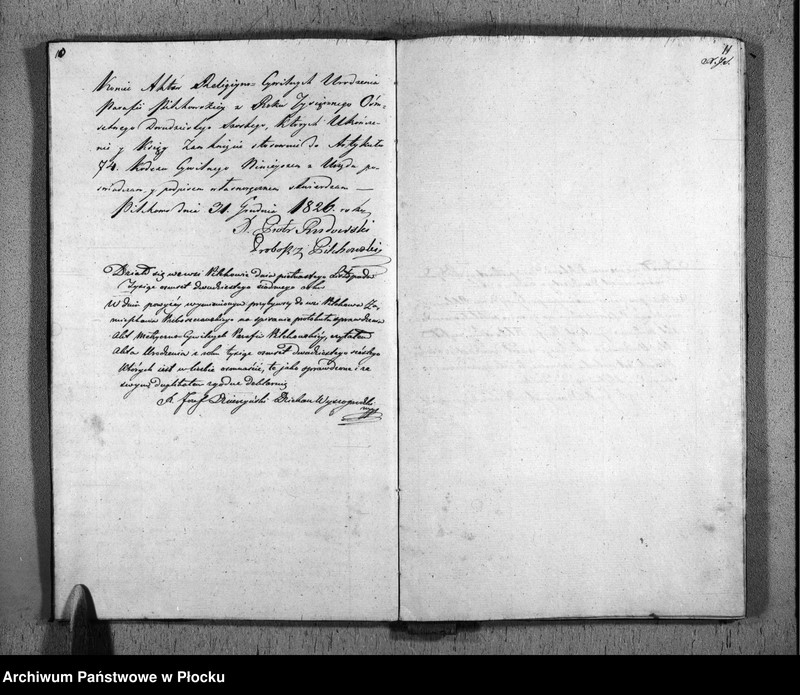 10
Koniec Aktów Religijno Cywilnych Urodzenia
Parafii Pilchowskiey z Roku Tysiącznego Ośm-
setnego Dwudziestego Szóstego, których Ukończe-
nie y Księgi Zamknięcie stosownie do Artykułu
74. Kodexu Cywilnego Ninieyszem z Urzędu po-
świadczam, y podpisem własnoręcznem stwierdzam —
Pilchowo dnia 31. Grudnia 1826. roku
X. Piotr
Proboszcz Pilchowski
Działo się we wsi Pilchowie dnia piętnastego Listopada
Tysiąc osmset dwudziestego siodmego roku
W dniu powyżey wymienionym przybywszy do wsi Pilchowa
na spisanie protokułu sprawdzenia
Akt Metryczno Cywilnych Parafii Pilchowskiey, czytałem
Akta Urodzenia z roku Tysiąc osmset dwudziestego szóstego
których iest w liczbie osmnaście, te jako sprawdzone i ze
swoym duplikatem zgodne deklaruię
X. Józef Dziekan Wyszogrodzki
11
Archiwum Państwowe w Płocku